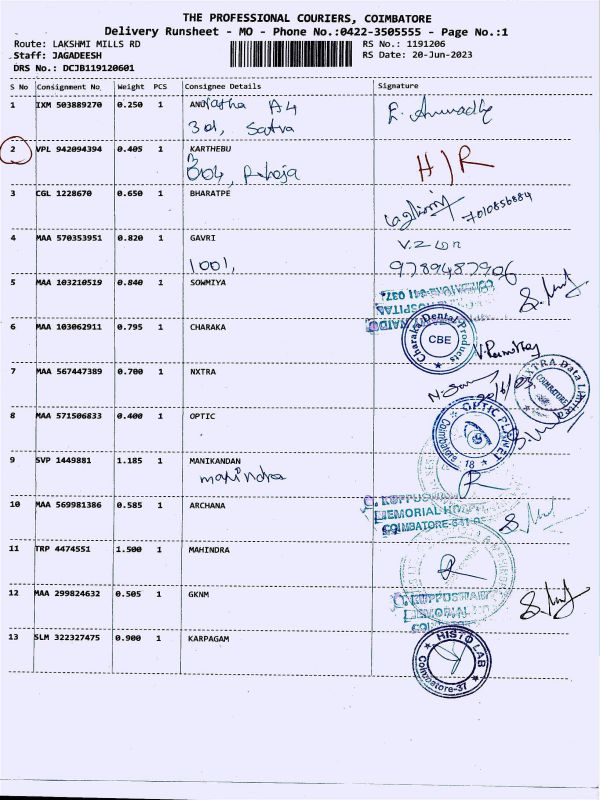 THE PROFESSIONAL COURIERS, COIMBATORE
Delivery Runsheet - MO - Phone No.:0422-3505555 - Page No.:1
Route: LAKSHMI MILLS RD
RS No.: 1191206
Staff: JAGADEESH
RS Date: 20-Jun-2023
DRS No.: DCJB119120601
S No Consignment No Weight PCS Consignee Details Signature
1 IXM 503889270 0.250 1
A4
301, Satva
2 VPL 942094394 0.405 1 KARTHEBU
H)R
3 CGL 1228670 0.650 1 BHARATPE
7010856884
4 MAA 570353951 0.820 1 GAVRI
1001,
9789487906
5 MAA 103210519 0.840 1 SOWMIYA
6 MAA 103062911 0.795 1 CHARAKA
Charaka Dental Products
CBE
7 MAA 567447389 0.700 1 NXTRA
COIMBATORE
8 MAA 571506833 0.400 1 OPTIC
OPTIC PLANET
Coimbatore
18
9 SVP 1449881 1.185 1 MANIKANDAN
mahindra
10 MAA 569981386 0.585 1 ARCHANA
COIMBATORE-641
11 TRP 4474551 1.500 1 MAHINDRA
12 MAA 299824632 0.505 1 GKNM
13 SLM 322327475 0.900 1 KARPAGAM
HISTO LAB
Coimbatore-37